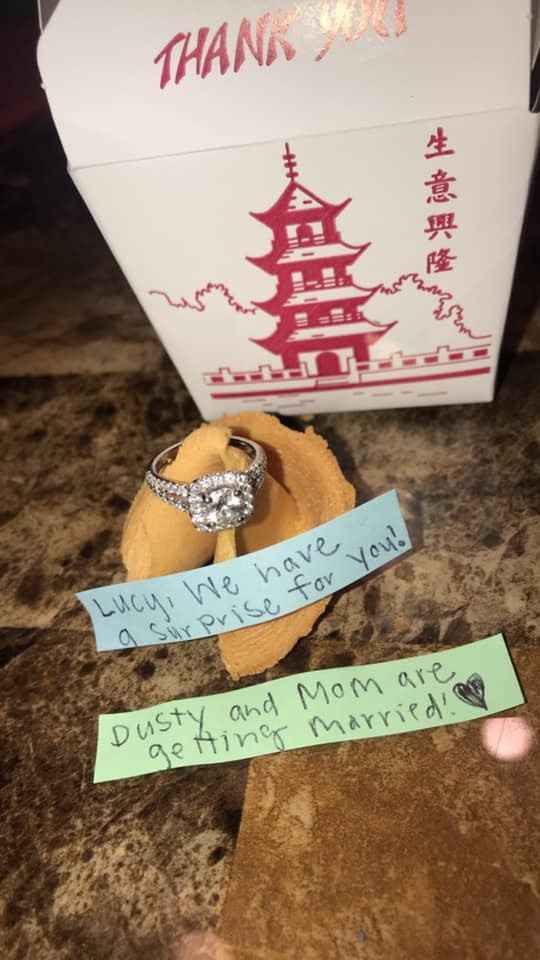 THANK YOU
生意興隆
Lucy, We have
a surprise for you!
Dusty and Mom are
getting married!